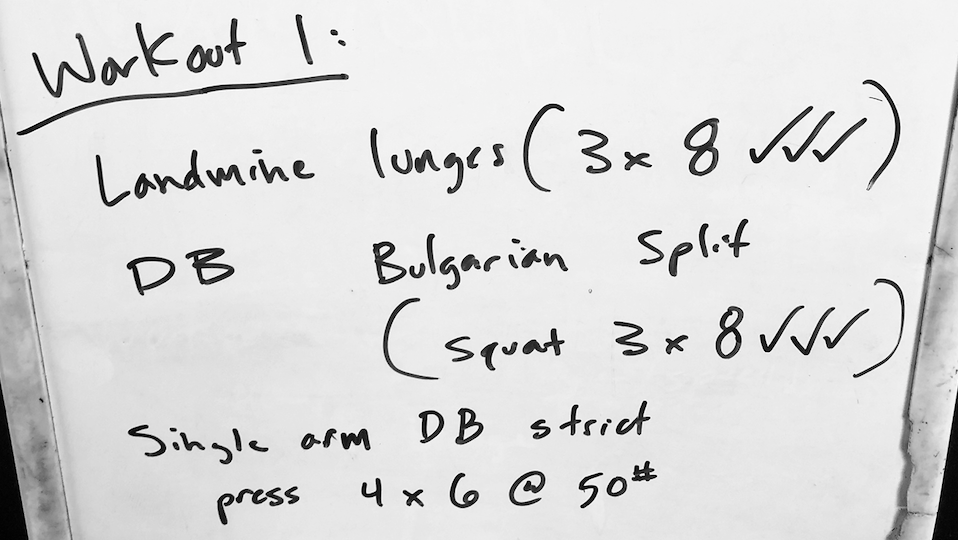 Workout 1:
Landmine lunges (3 x 8 ✓✓✓)
DB Bulgarian Split
(squat 3 x 8 ✓✓✓)
Single arm DB strict
press 4 x 6 @ 50#